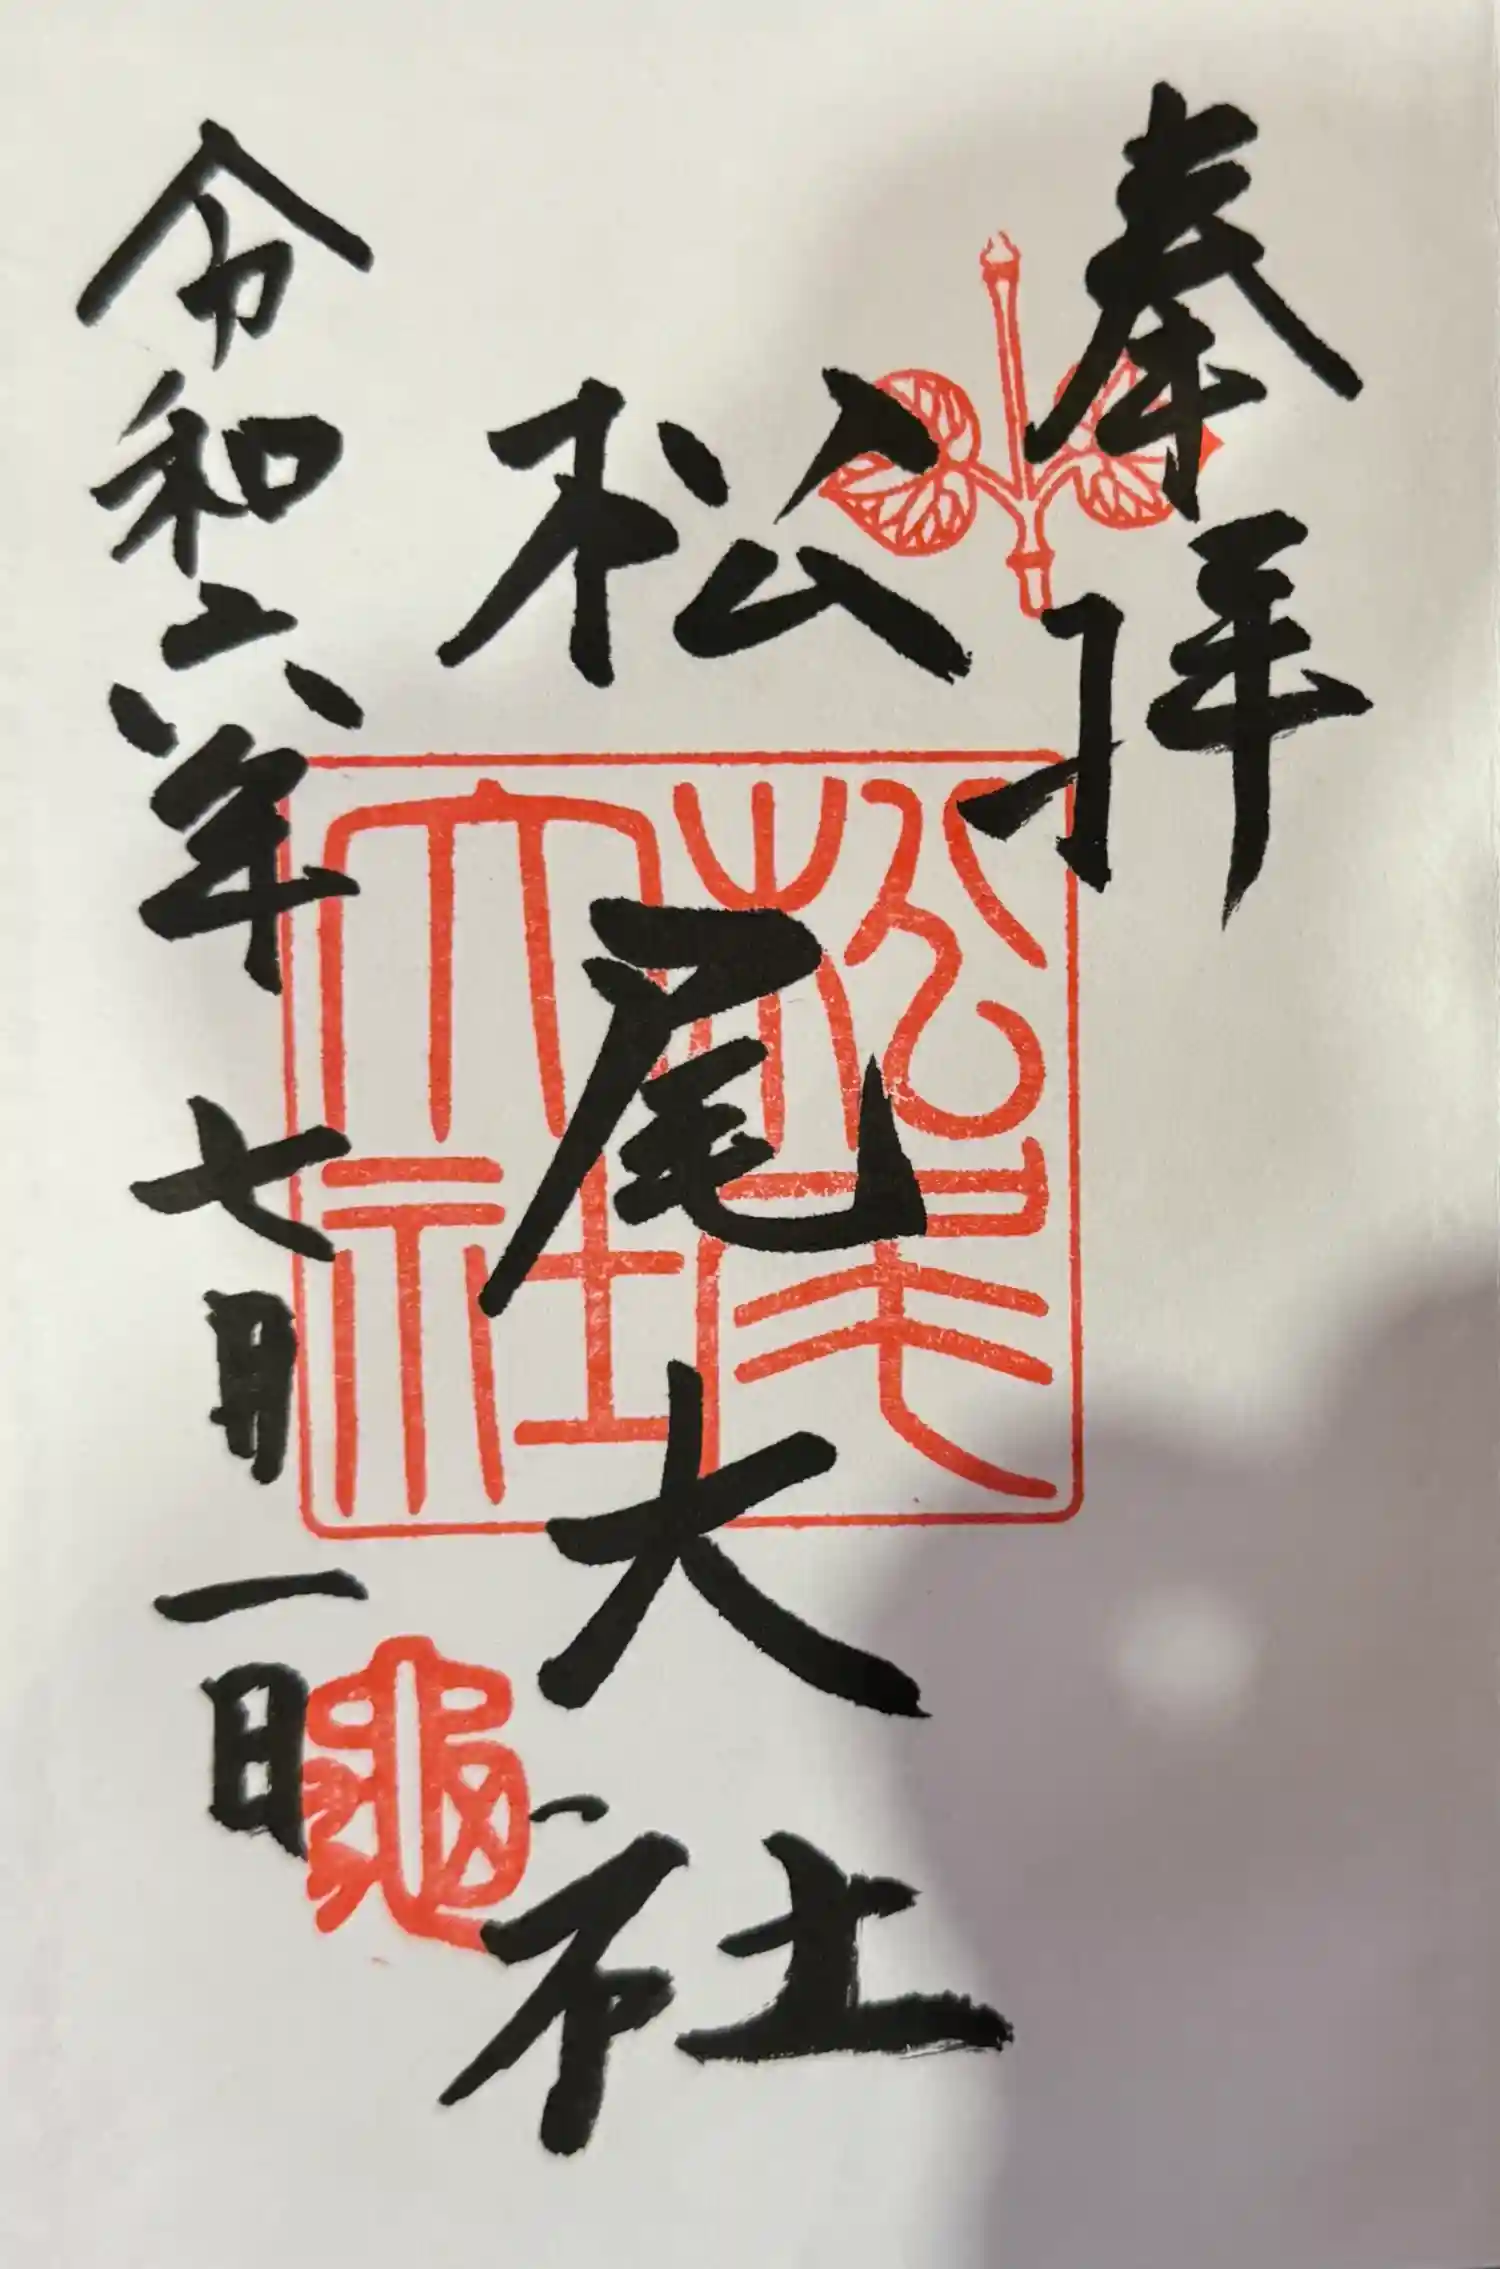 奉拝
松尾大社
令和六年七月一日
松尾大社
龜